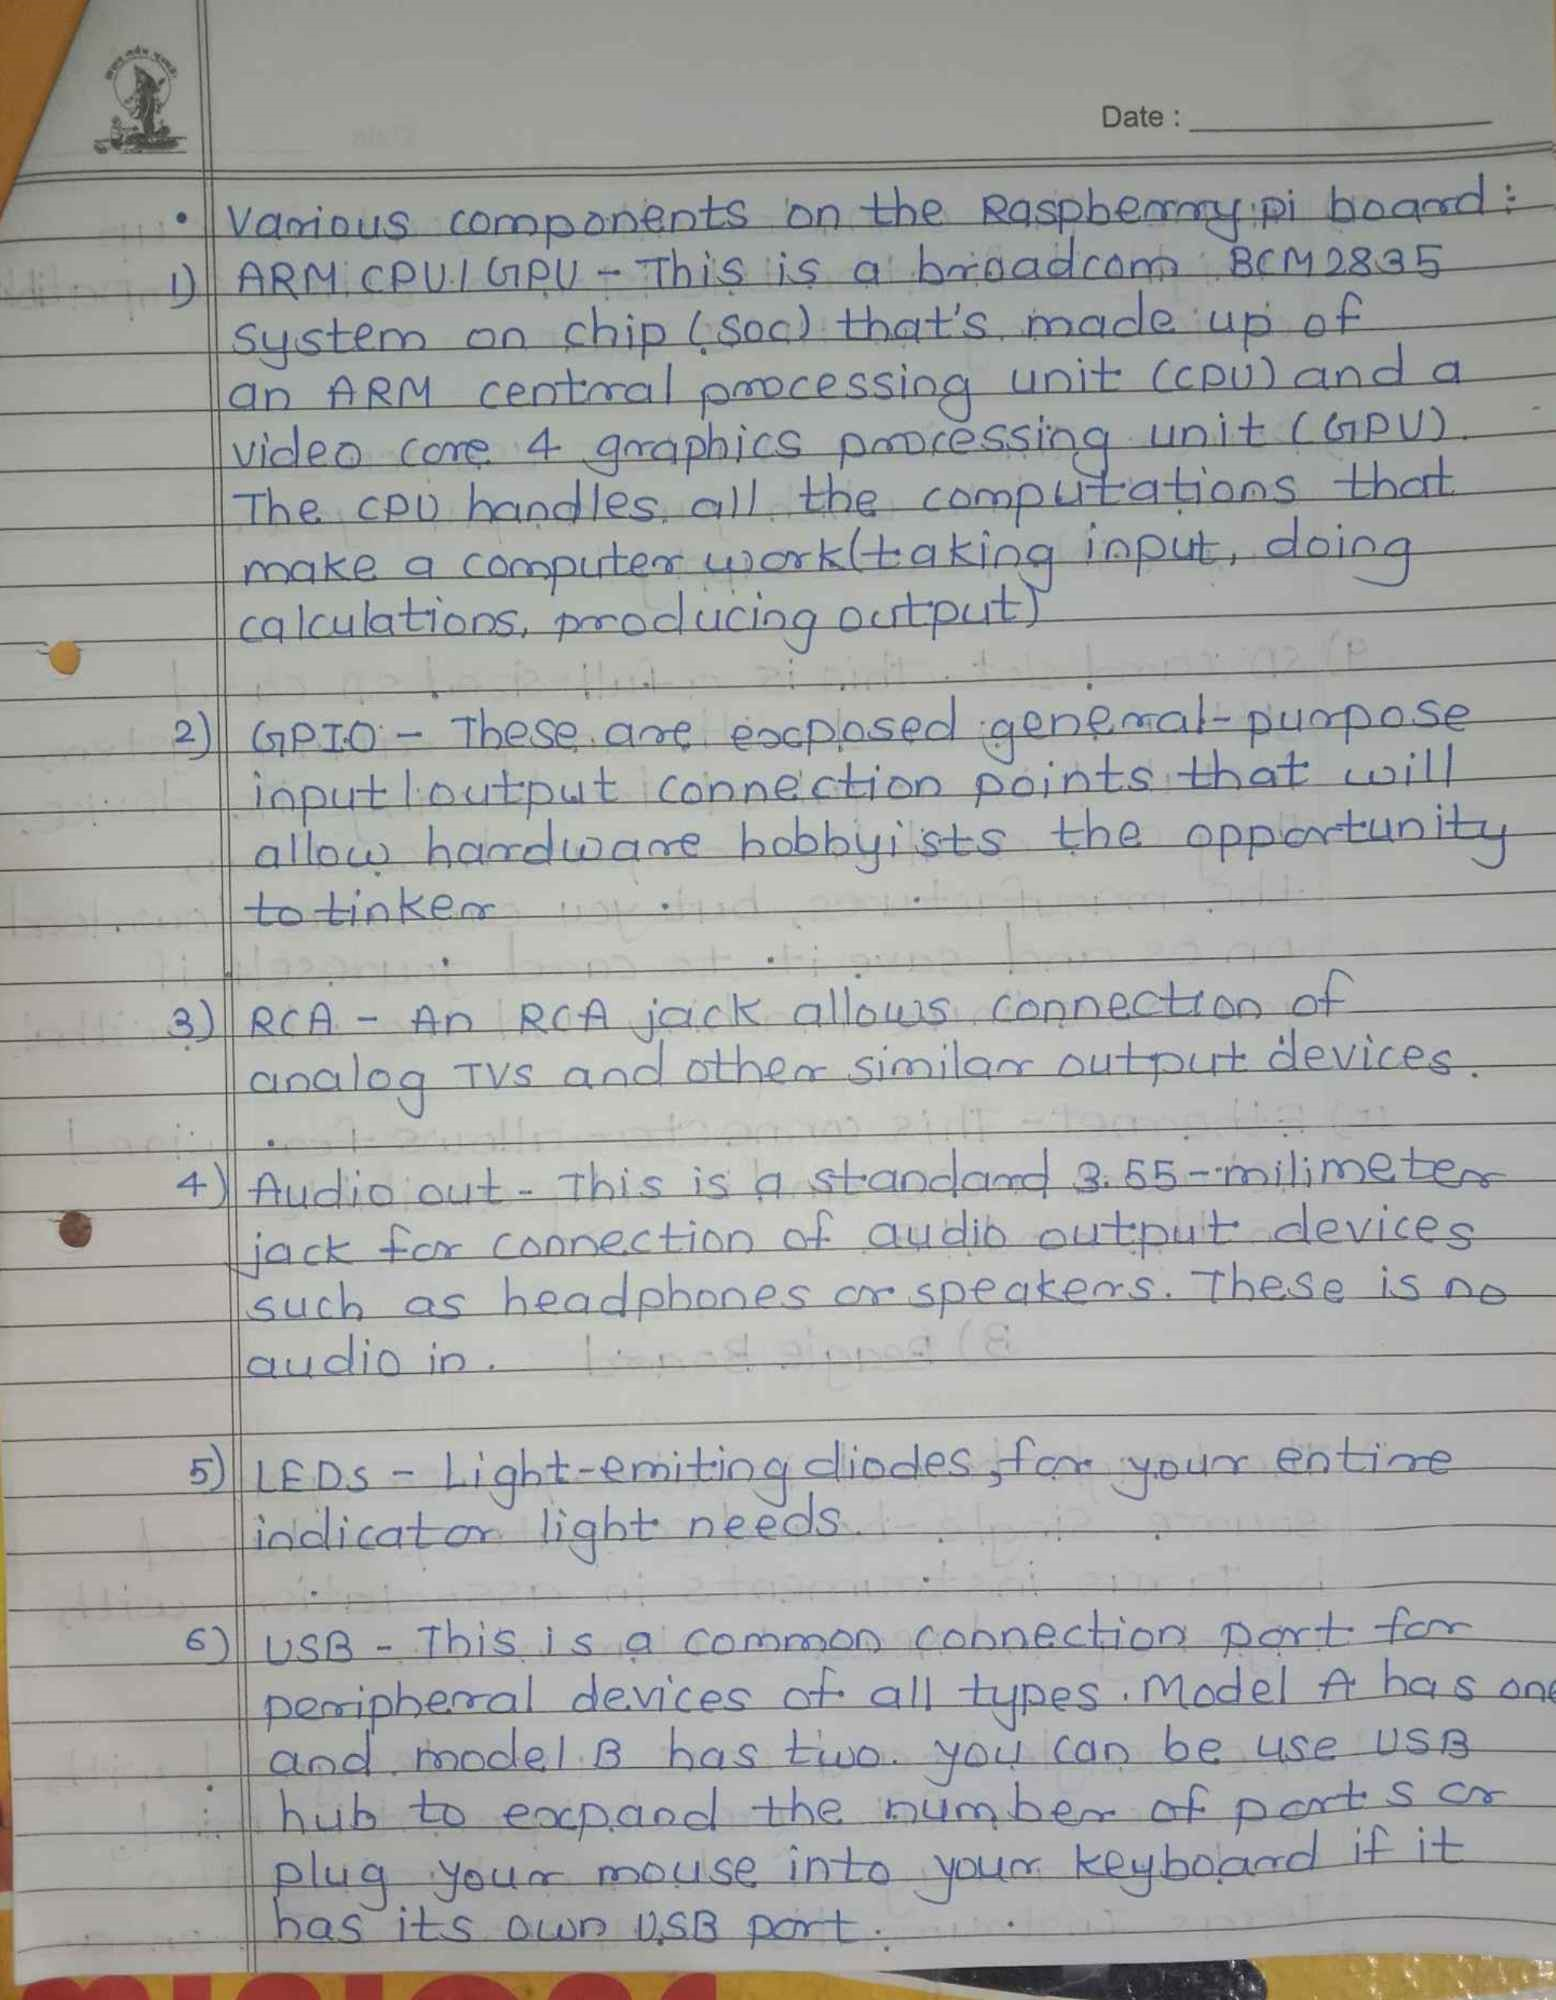 Date :
• Various components on the Raspberry pi board :
1) ARM CPU/GPU - This is a broadcom BCM2835
system on chip (soc) that's made up of
an ARM central processing unit (CPU) and a
video core 4 graphics processing unit (GPU).
The CPU handles all the computations that
make a computer work(taking input, doing
calculations, producing output)
2) GPIO - These are exposed general-purpose
input/output connection points that will
allow hardware hobbyists the opportunity
to tinker
3) RCA - An RCA jack allows connection of
analog TVs and other similar output devices.
4) Audio out - This is a standard 3.55-milimeter
jack for connection of audio output devices
such as headphones or speakers. These is no
audio in.
5) LEDs - Light-emiting diodes, for your entire
indicator light needs.
6) USB - This is a common connection port for
peripheral devices of all types. Model A has one
and model B has two. you can be use USB
hub to expand the number of ports or
plug your mouse into your keyboard if it
has its own USB port.